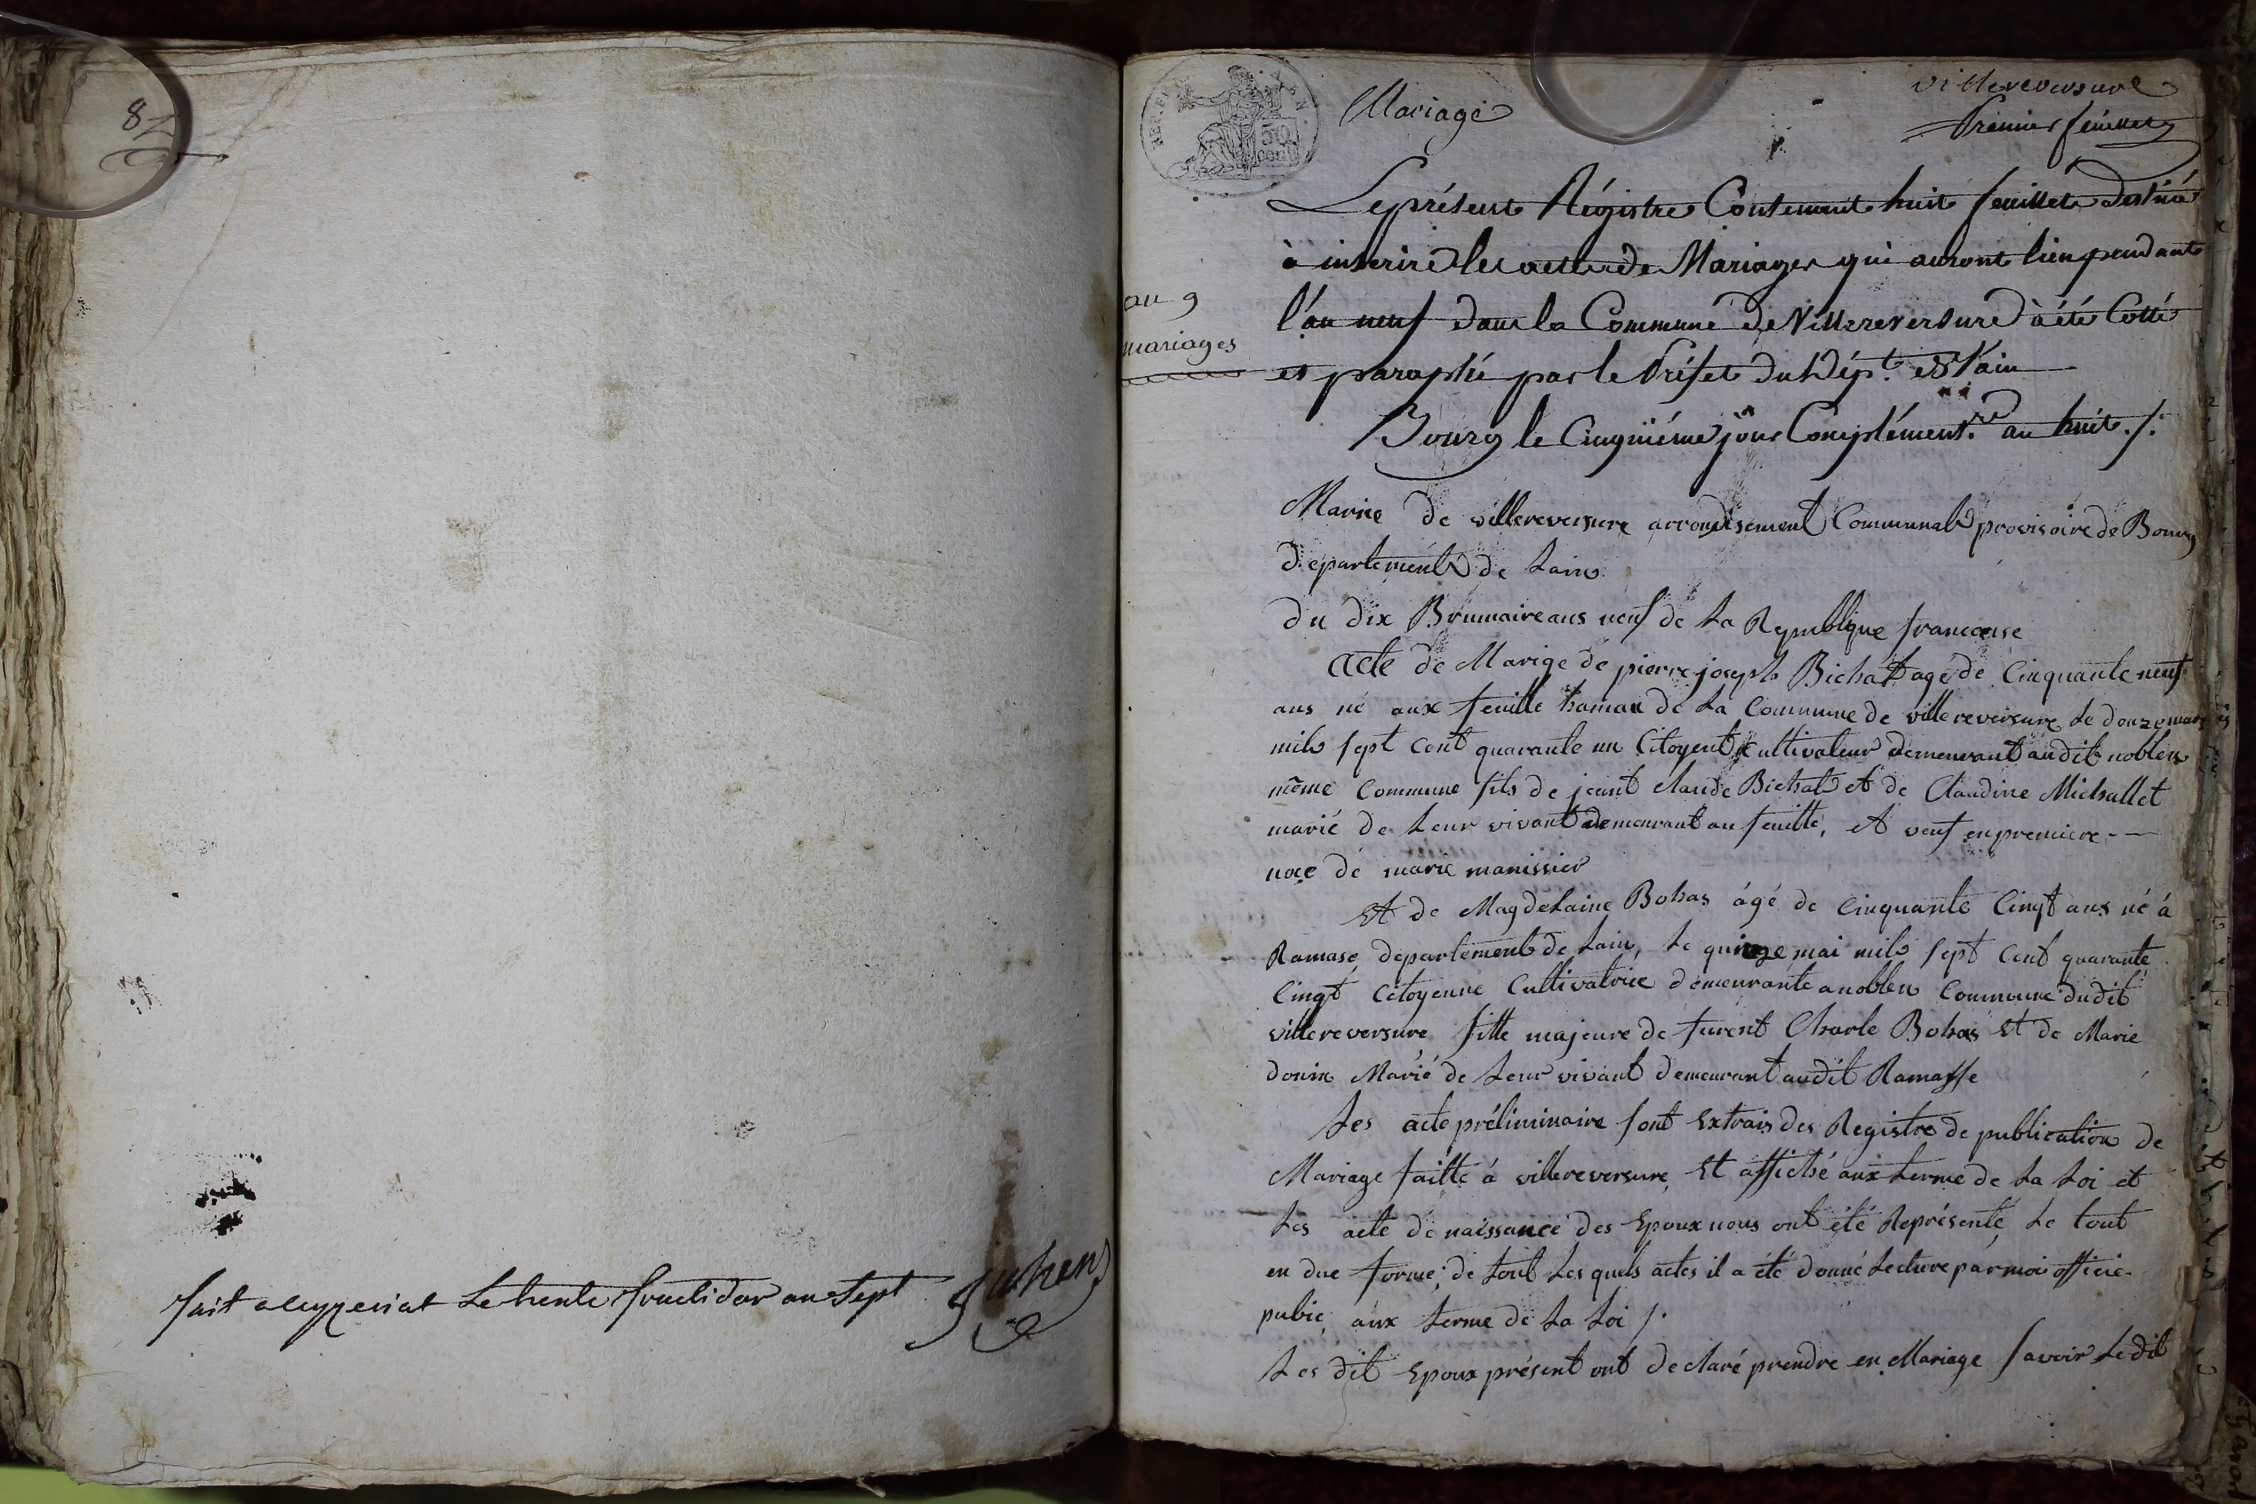 8
fait a Ceyzeriat Le trente fructidor an Sept
Mariage
villereversure
Premier feuillet
REP. FRA
50
cent
Le présent Régistre Contenant huit feuillets destiné
à inscrire les actes de Mariages qui auront lieu pendant
an 9
mariages
l'an neuf dans la Commune de Villereversure à été Cotté
et paraphé par le Préfet du Dép.t de l'ain
Bourg le Cinquiéme jour Complément.re an huit ./.
Mairie de villereversure arrondisement Communal provisoire de Bourg
departement de Lain
du dix Brumaire ans neuf de La Republque francoise
acte de Marige de pierre joseph Bichat agé de Cinquante neuf
ans né aux feuille hamau de La Commune de villereversure Le douze mars
mil sept cent quarante un Citoyent Cultivateur demeurant audit noblens
même Commune fils de jeant claude Bichat et de Claudine Michallet
marié de Leur vivant demeurant au feuille, et veuf en premiere
noce de marie manissier
et de Magdelaine Bohas âgé de Cinquante Cinqt ans né á
Ramase departement de Lain, Le quinze mai mil sept Cent quarante
Cinqt Citoyenne Cultivatrice demeurante a noblen Commune dudit
villereversure fille majeure de furent Charle Bohas et de Marie
donin Marié de Leur vivant demeurant audit Ramasse
Les acte préliminaire sont Extrais des Registre de publication de
Mariage faitte á villereversure, et affiché aux terme de La Loi et
Les acte de naissance des Epoux nous ont été Représenté, Le tout
en due forme; de tout Les quels actes il a été donné Lecture par moi officie
pubic, aux terme de La Loi /.
Les dit Epoux présent ont declaré prendre en Mariage savoir Le dit